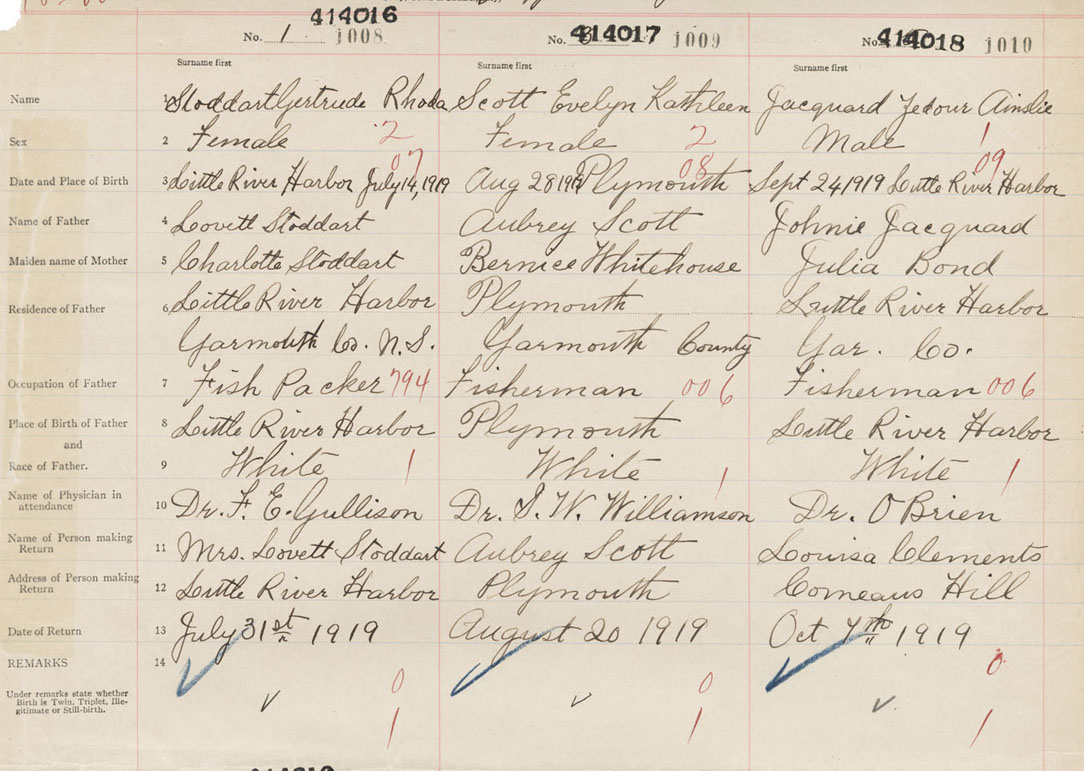 414016 414017 414018
No. 1 1008 No. 1009 No. 1010
Surname first Surname first Surname first
Name 1 Stoddart Gertrude Rhoda Scott Evelyn Kathleen Jacquard Ainslie
Sex 2 Female 2 Female 2 Male 1
07 08 09
Date and Place of Birth 3 Little River Harbor July 14, 1919 Aug 28 1919 Plymouth Sept 24 1919 Little River Harbor
Name of Father 4 Lovett Stoddart Aubrey Scott Johnie Jacquard
Maiden name of Mother 5 Charlotte Stoddart Bernice Whitehouse Julia Bond
Residence of Father 6 Little River Harbor Plymouth Little River Harbor
Yarmouth Co. N.S. Yarmouth County Yar. Co.
Occupation of Father 7 Fish Packer 794 Fisherman 006 Fisherman 006
Place of Birth of Father 8 Little River Harbor Plymouth Little River Harbor
and
Race of Father. 9 White 1 White 1 White 1
Name of Physician in
attendance 10 Dr. F. E. Gullison Dr. S. W. Williamson Dr. O Brien
Name of Person making
Return 11 Mrs. Lovett Stoddart Aubrey Scott Louisa Clements
Address of Person making
Return 12 Little River Harbor Plymouth Comeaus Hill
Date of Return 13 July 31st 1919 August 20 1919 Oct 7th 1919
REMARKS 14
0 0 0
Under remarks state whether
Birth is Twin, Triplet, Ille-
gitimate or Still-birth.
1 1 1